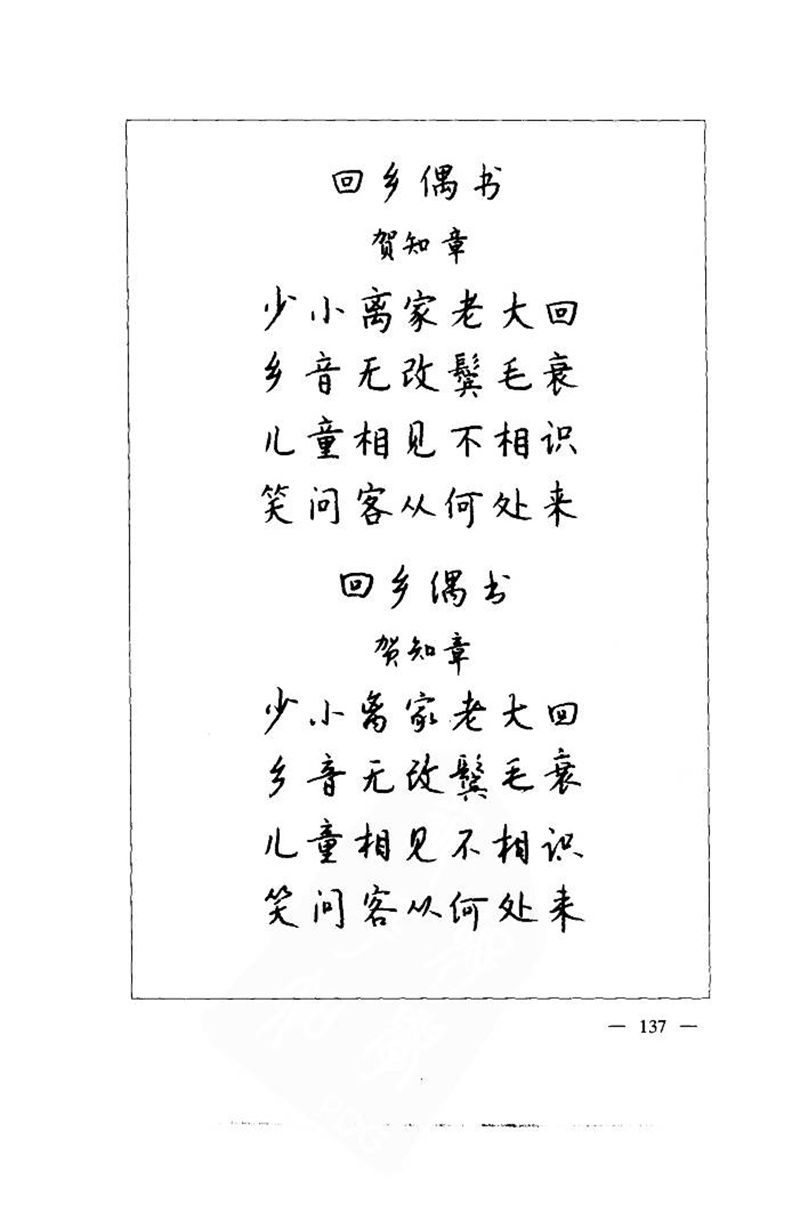 回乡偶书
贺知章
少小离家老大回
乡音无改鬓毛衰
儿童相见不相识
笑问客从何处来
回乡偶书
贺知章
少小离家老大回
乡音无改鬓毛衰
儿童相见不相识
笑问客从何处来
— 137 —